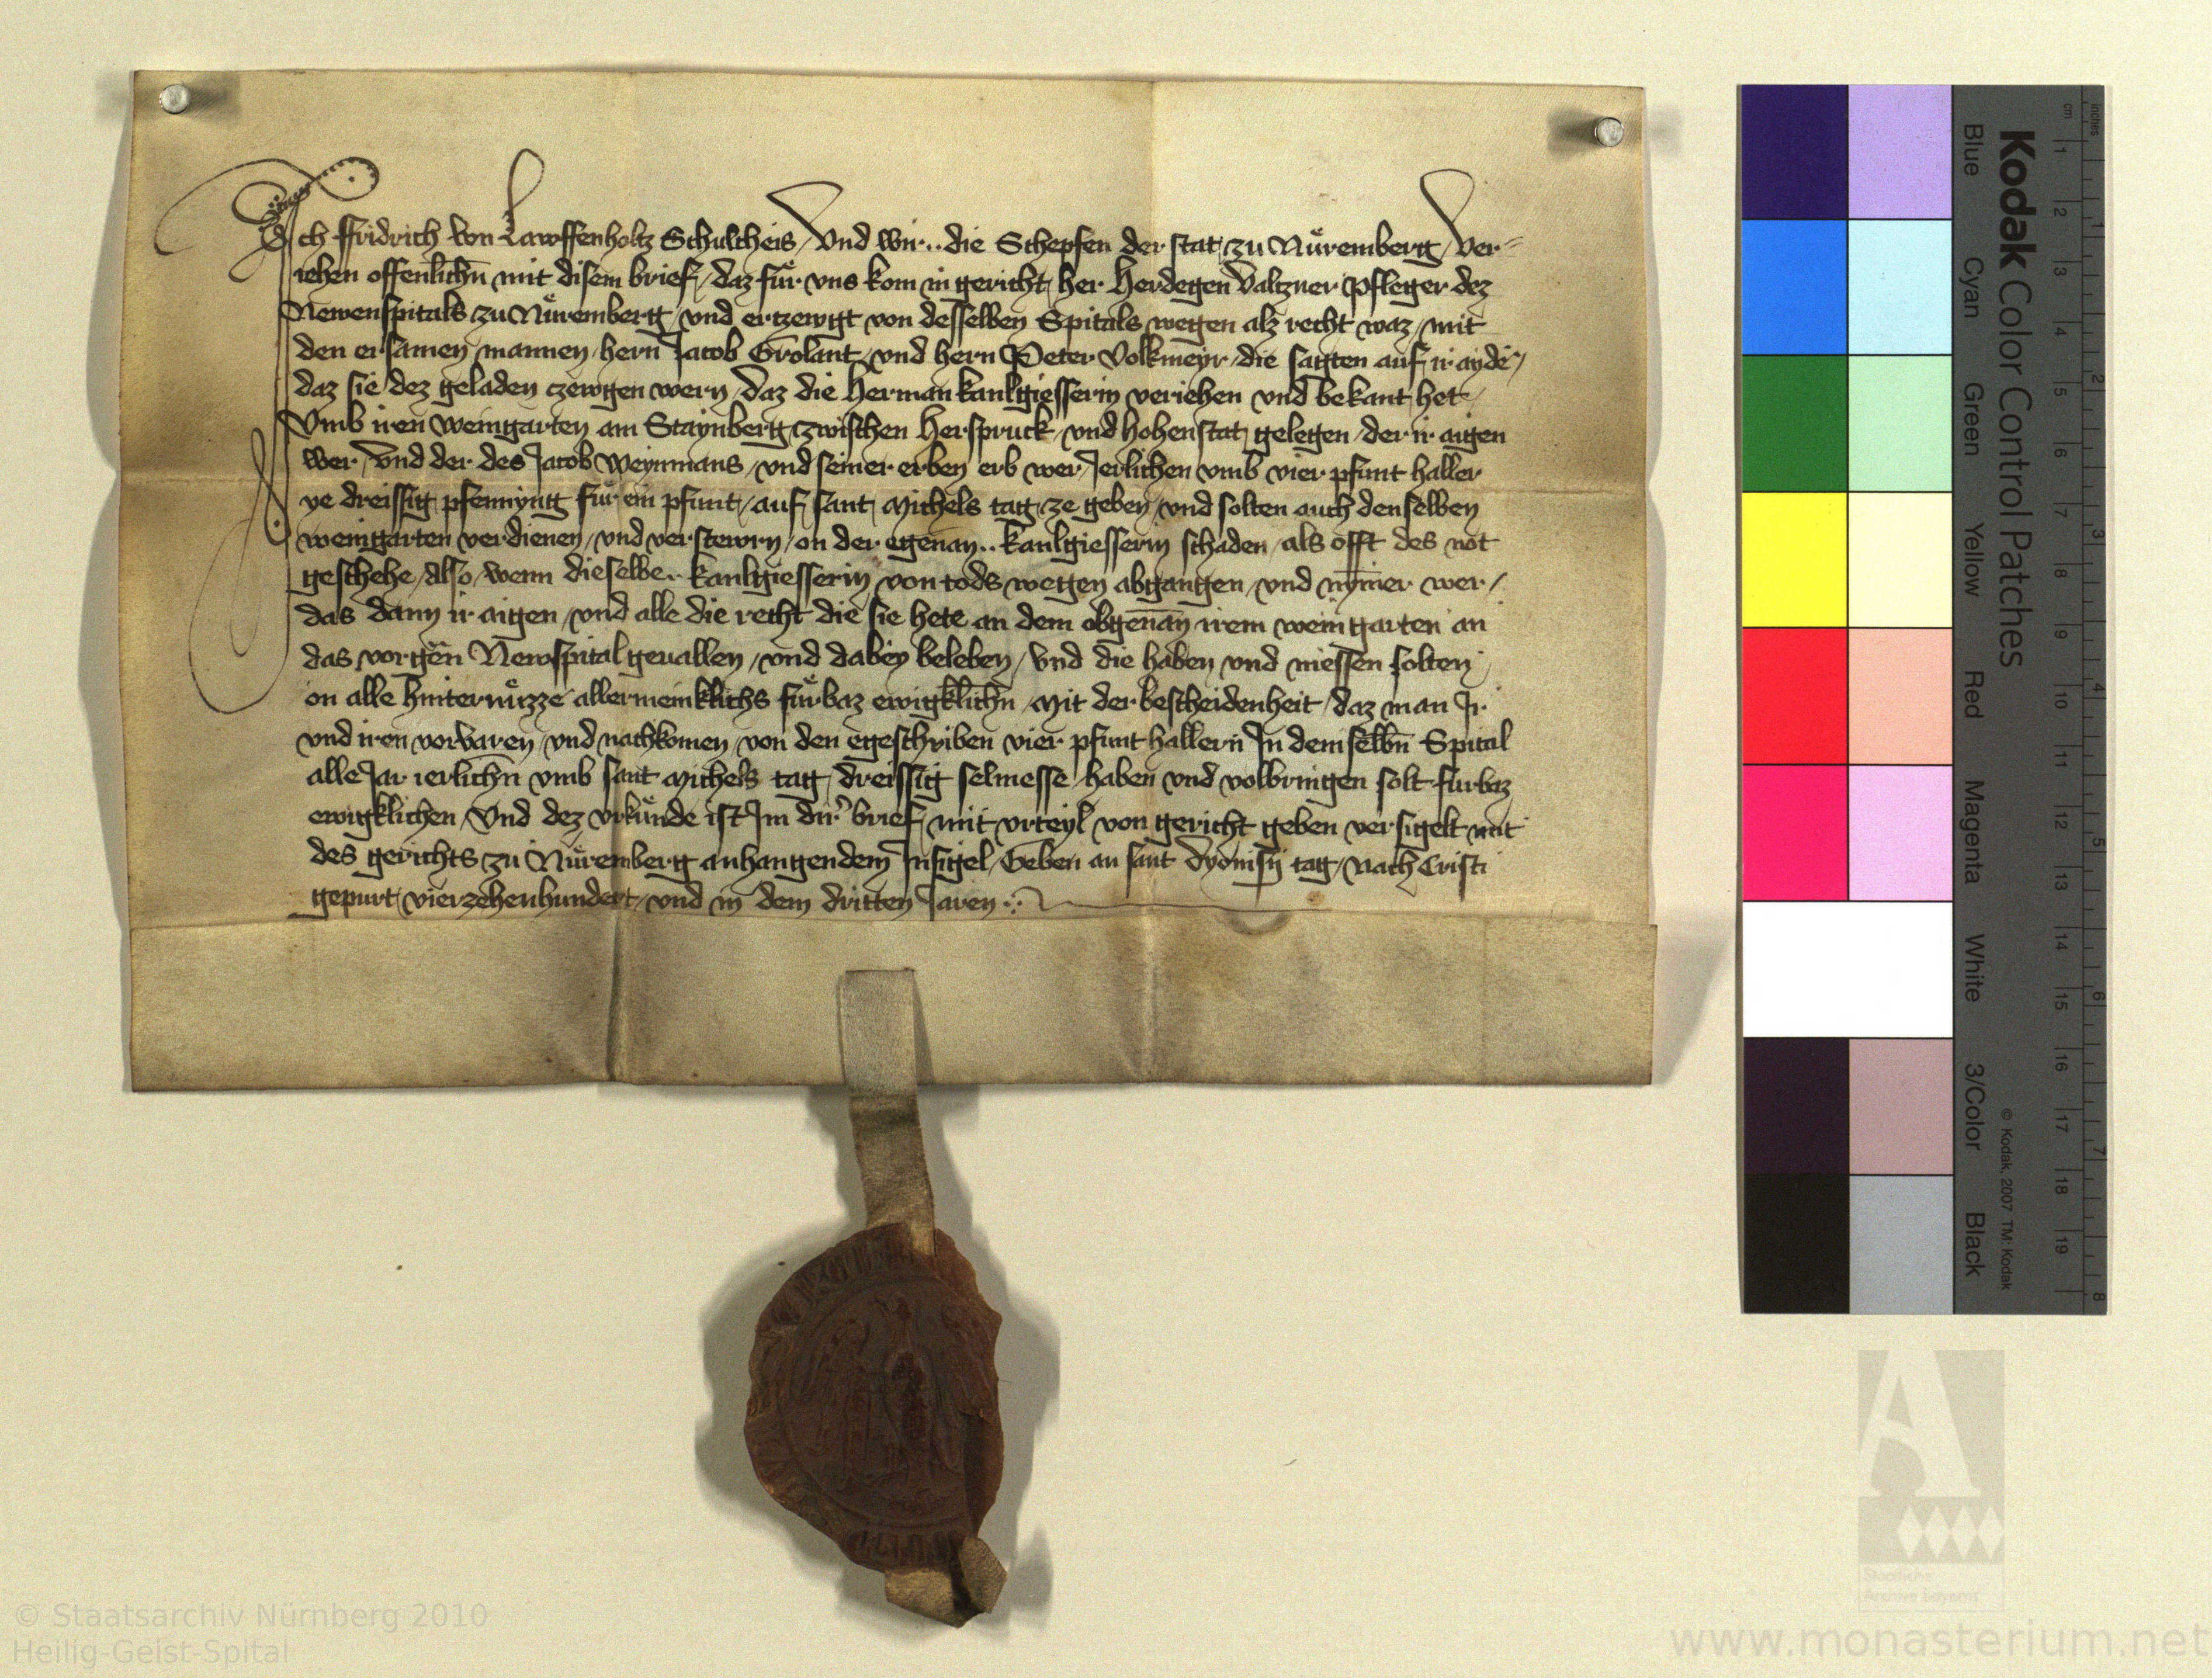 Ich ffridrich von Lawffenholtz Schultheis / Vnd wir .. die Schepfen der stat zu Nuͤremberg / Ver-
iehen offenlichn̄ mit disem brief / daz fuͤr vns kom in gericht her Herdegen Valtzner Pfleger dez
Newenspitals zu Nuͤremberg / vnd ertzewgt von desselben Spitals wegen alz recht waz / mit
den ersamen mannen / hern Jacob Grolant / vnd hern Peter Volkmeyr / die sagten auf ir ayde /
daz sie dez geladen czewgen wern / daz die Herman kanlgiesserin veriehen vnd bekant het /
Vmb iren weingarten am Staynberg / czwischen Herspruck / vnd hohenstat gelegen / der ir aigen
wer / Vnd der des Jacob Weynmans / vnd seiner erben erb wer / Jerlichen vmb vier pfunt haller
ye dreissig pfennyng fuͤr ein pfunt / auf sant Michels tag ze geben / vnd solten auch denselben
weingarten verdienen / vnd verstewrn / on der egenan̄ .. kanlgiesserin schaden / als offt des not
geschehe / Also / wenn dieselbe .. kanlgiesserin von tods wegen abgangen / vnd nym̄er wer /
das dann ir aigen / vnd alle die recht die sie hete an dem obgenan̄ irem weingarten an
das vorgen̄ Newspital geuallen / vnd dabey beleben / Vnd die haben vnd niessen solten /
on alle hinternuͤzze allermeinklichs fuͤrbaz ewigklichn̄ / Mit der bescheidenheit / daz man Ir
vnd iren vorvaren / vnd nachkomen / von den egeschriben vier pfunt hallern In demselbn̄ Spital
alle Jar ierlichn̄ vmb sant Michels tag / dreissig selmesse / haben vnd volbringen solt furbaz
ewigklichen / Vnd dez vrkuͤnde ist Im dirr brief / mit vrteyl von gericht geben versigelt mit
des gerichts zu Nuͤremberg anhangendem Insigel / Geben an sant Dyonisij tag / Nach Cristi
gepurt / vierzehenhundert / vnd in dem dritten Jaren
Kodak Color Control Patches
© Kodak, 2007 TM: Kodak
Blue Cyan Green Yellow Red Magenta White 3/Color Black
cm 1 2 3 4 5 6 7 8 9 10 11 12 13 14 15 16 17 18 19
inches 1 2 3 4 5 6 7 8
Staatliche
Archive Bayerns
© Staatsarchiv Nürnberg 2010
Heilig-Geist-Spital
www.monasterium.net